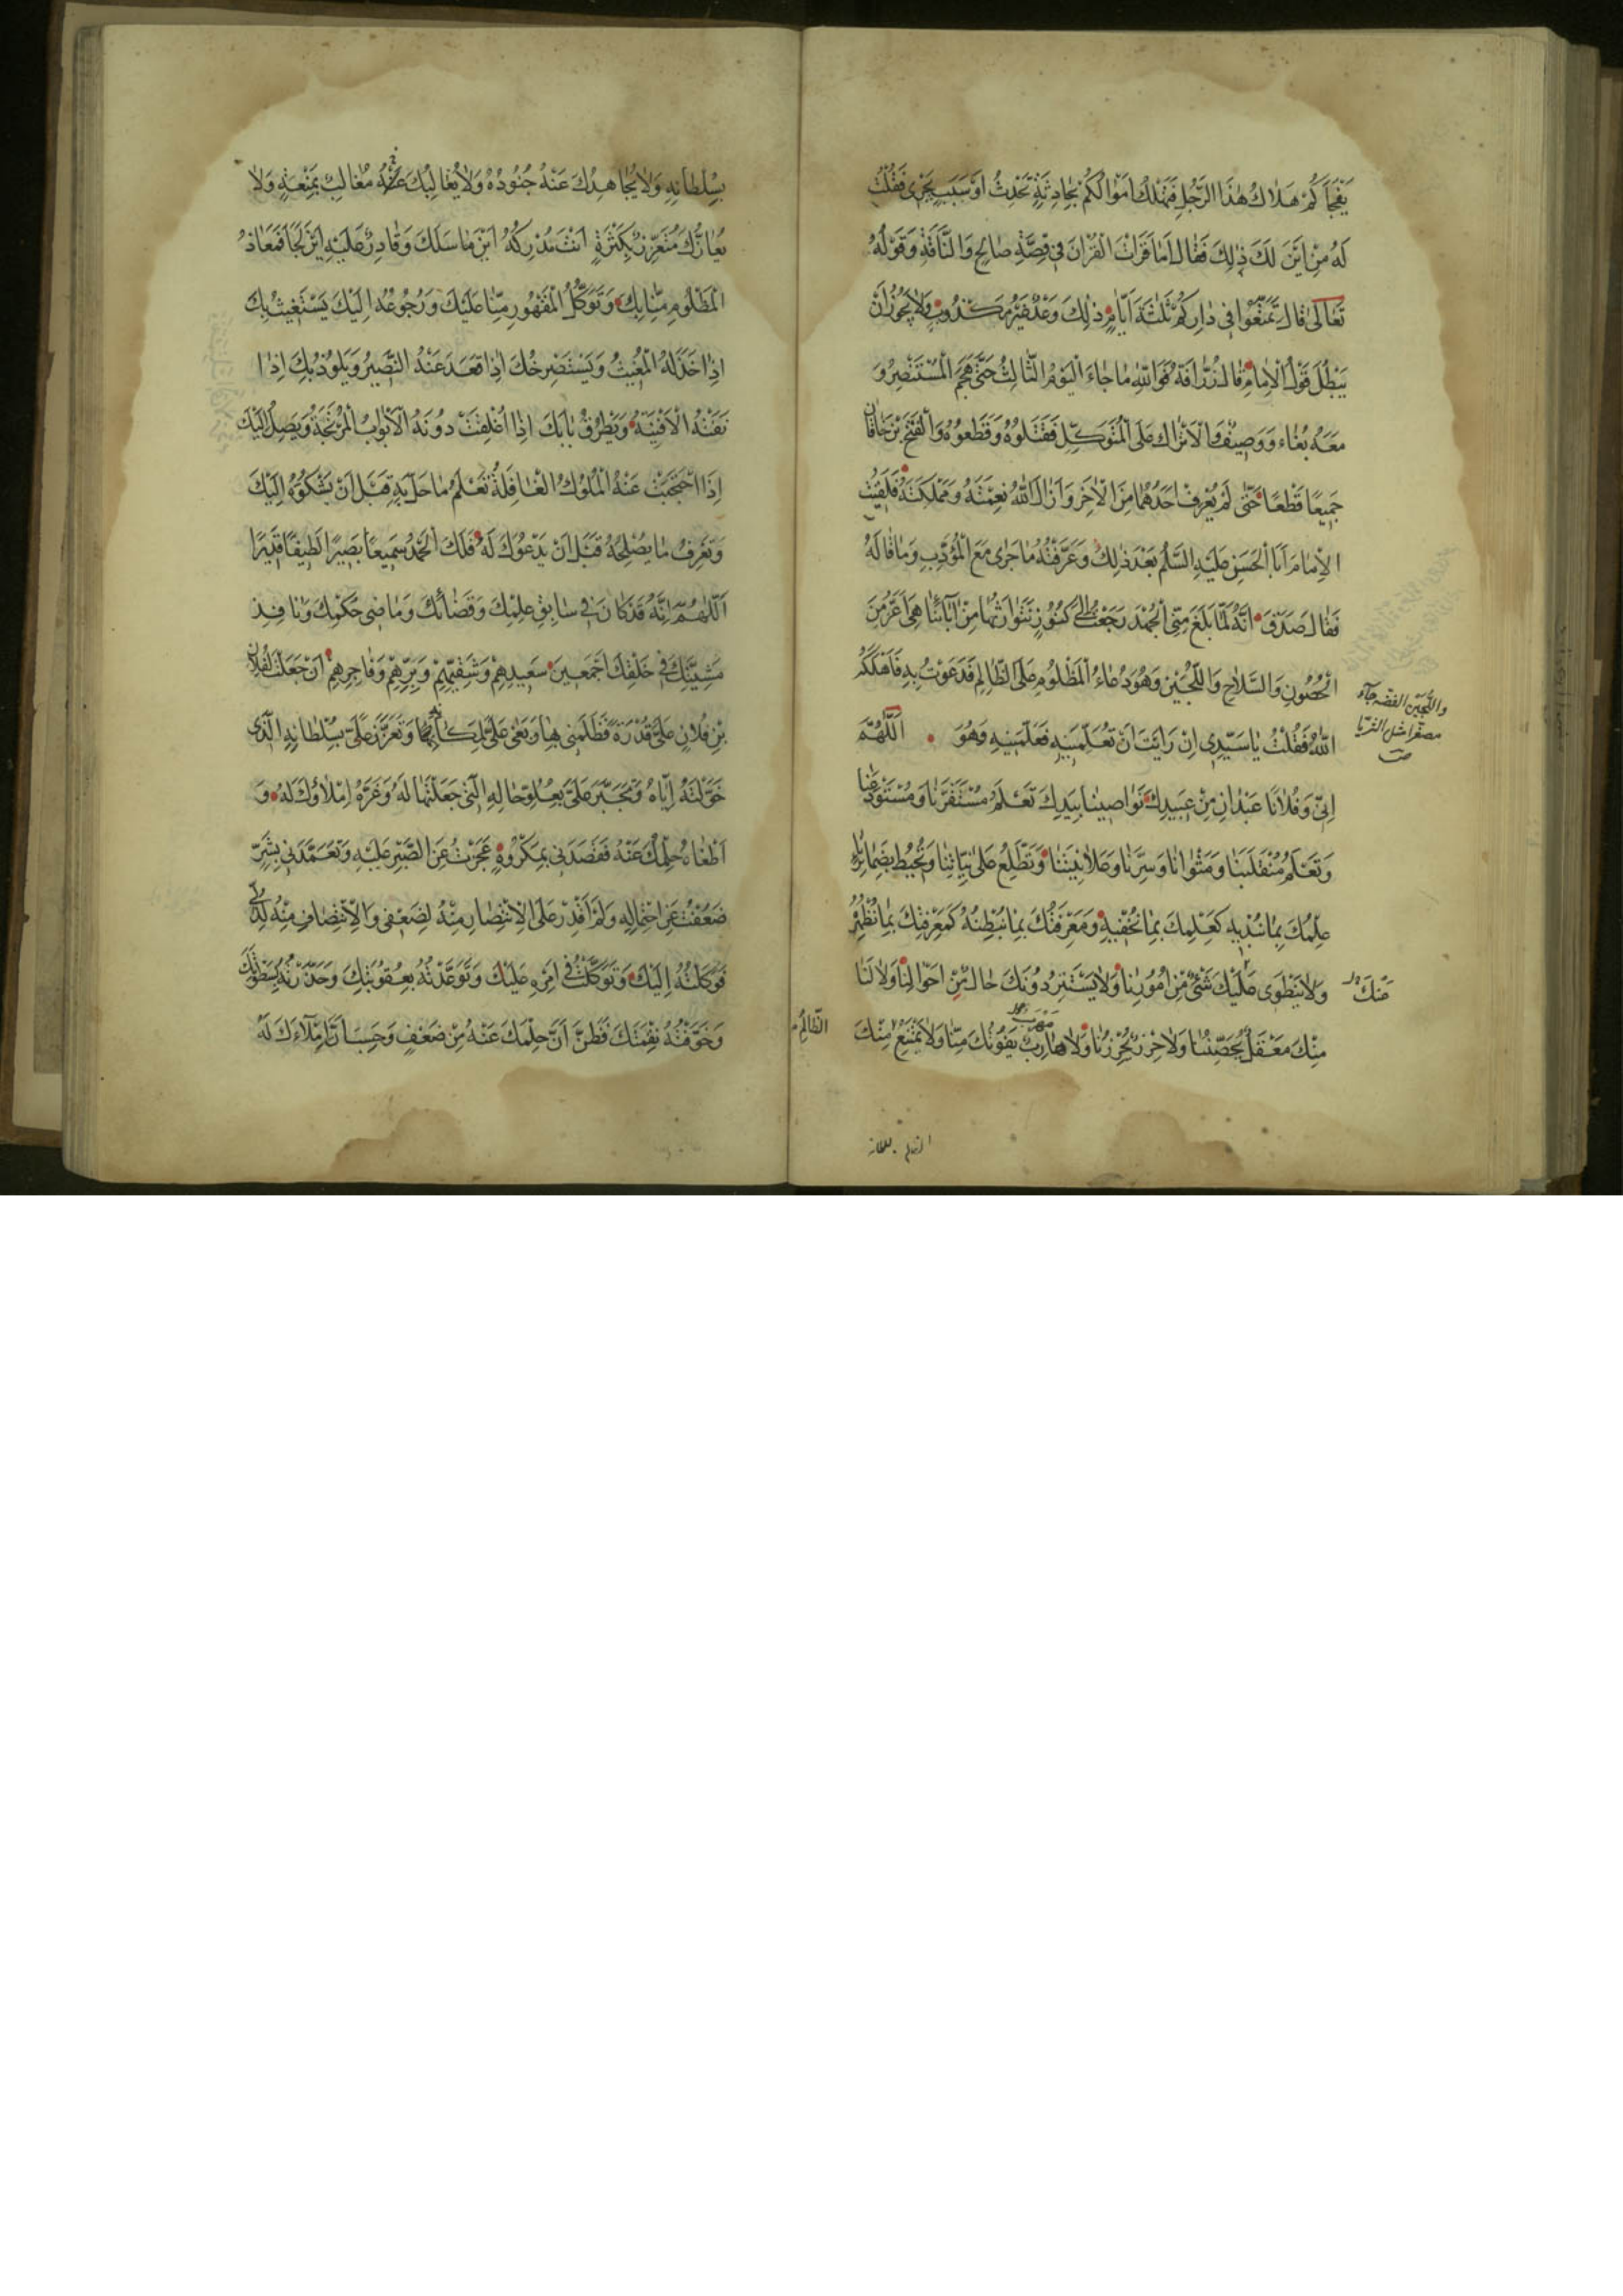 يَفْجَأَكُمْ هَلَاكُ هٰذَا الرَّجُلِ فَتَهْلِكَ اَمْوَالُكُمْ بِحَادِثَةٍ تَحْدُثُ اَوْ سَبَبٍ يَجْرِى فَقُلْتُ
لَهُ مِنْ اَيْنَ لَكَ ذٰلِكَ فَقَالَ اَمَا قَرَأْتَ الْقُرْاٰنَ فِى قِصَّةِ صَالِحٍ وَالنَّاقَةِ وَقَوْلَهُ
تَعَالىٰ قَالَ تَمَتَّعُوا فِى دَارِكُمْ ثَلٰثَةَ اَيَّامٍ ذٰلِكَ وَعْدٌ غَيْرُ مَكْذُوبٍ وَلَا يَجُوزُ اَنْ
يَبْطُلَ قَوْلُ الْاِمَامِ قَالَ زُرَافَةُ فَوَاللّٰهِ مَا جَاءَ الْيَوْمُ الثَّالِثُ حَتّٰى هَجَمَ الْمُنْتَصِرُ وَ
مَعَهُ بُغَاءُ وَوَصِيفٌ وَالْاَتْرَاكُ عَلَى الْمُتَوَكِّلِ فَقَتَلُوهُ وَقَطَعُوهُ وَالْفَتْحَ بْنَ خَاقَانَ
جَمِيعًا قِطَعًا حَتّٰى لَمْ يُعْرَفْ اَحَدُهُمَا مِنَ الْاٰخَرِ وَاَزَالَ اللّٰهُ نِعْمَتَهُ وَمَمْلَكَتَهُ فَلَقِيتُ
الْاِمَامَ اَبَا الْحَسَنِ عَلَيْهِ السَّلٰمُ بَعْدَ ذٰلِكَ وَعَرَّفْتُهُ مَا جَرٰى مَعَ الْمُؤَدِّبِ وَمَا قَالَهُ
فَقَالَ صَدَقَ اَنَّهُ لَمَّا بَلَغَ مِنِّى الْجُهْدَ رَجَعْتُ اِلٰى كُنُوزٍ نَتَوَارَثُهَا مِنْ اٰبَائِنَا هِىَ اَعَزُّ مِنَ
الْحُصُونِ وَالسِّلَاحِ وَاللُّجَيْنِ وَهُوَ دُعَاءُ الْمَظْلُومِ عَلَى الظَّالِمِ فَدَعَوْتُ بِهِ فَاَهْلَكَهُ
واللُّجَيْن الفضه جاء
مصغّرا مثل الثريا
ص
اللّٰهُ فَقُلْتُ يَا سَيِّدِى اِنْ رَاَيْتَ اَنْ تُعَلِّمَنِيهِ فَعَلَّمَنِيهِ وَهُوَ اَللّٰهُمَّ
اِنِّى وَفُلَانًا عَبْدَانِ مِنْ عَبِيدِكَ نَوَاصِينَا بِيَدِكَ تَعْلَمُ مُسْتَقَرَّنَا وَمُسْتَوْدَعَنَا
وَتَعْلَمُ مُنْقَلَبَنَا وَمَثْوَانَا وَسِرَّنَا وَعَلَانِيَتَنَا وَتَطَّلِعُ عَلٰى نِيَّاتِنَا وَتُحِيطُ بِضَمَائِرِنَا
عِلْمُكَ بِمَا نُبْدِيهِ كَعِلْمِكَ بِمَا نُخْفِيهِ وَمَعْرِفَتُكَ بِمَا نُبْطِنُهُ كَمَعْرِفَتِكَ بِمَا نُظْهِرُهُ
وَلَا يَنْطَوِى عَلَيْكَ شَىْءٌ مِنْ اُمُورِنَا وَلَا يَسْتَتِرُ دُونَكَ حَالٌ مِنْ اَحْوَالِنَا وَلَا لَنَا
عَنْكَ
مِنْكَ مَعْقِلٌ يُحَصِّنُنَا وَلَا حِرْزٌ يُحْرِزُنَا وَلَا هَارِبٌ يَفُوتُكَ مِنَّا وَلَا يَمْتَنِعُ مِنْكَ
مَهْرَب
الظَّالِمُ
الظالم بسلطانه
بِسُلْطَانِهِ وَلَا يُجَاهِدُكَ عَنْهُ جُنُودُهُ وَلَا يُغَالِبُكَ عَنْهُ مُغَالِبٌ بِمَنْعَةٍ وَلَا
يُعَازُّكَ مُتَعَزِّزٌ بِكَثْرَةٍ اَنْتَ مُدْرِكُهُ اَيْنَ مَا سَلَكَ وَقَادِرٌ عَلَيْهِ اَيْنَ لَجَأَ فَمَعَاذُ
الْمَظْلُومِ مِنَّا بِكَ وَتَوَكُّلُ الْمَقْهُورِ مِنَّا عَلَيْكَ وَرُجُوعُهُ اِلَيْكَ يَسْتَغِيثُ بِكَ
اِذَا خَذَلَهُ الْمُغِيثُ وَيَسْتَصْرِخُكَ اِذَا قَعَدَ عَنْهُ النَّصِيرُ وَيَلُوذُ بِكَ اِذَا
نَفَتْهُ الْاَفْنِيَةُ وَيَطْرُقُ بَابَكَ اِذَا اُغْلِقَتْ دُونَهُ الْاَبْوَابُ الْمُرْتَجَةُ وَيَصِلُ اِلَيْكَ
اِذَا احْتَجَبَتْ عَنْهُ الْمُلُوكُ الْغَافِلَةُ تَعْلَمُ مَا حَلَّ بِهِ قَبْلَ اَنْ يَشْكُوَهُ اِلَيْكَ
وَتَعْرِفُ مَا يُصْلِحُهُ قَبْلَ اَنْ يَدْعُوَكَ لَهُ فَلَكَ الْحَمْدُ سَمِيعًا بَصِيرًا لَطِيفًا قَدِيرًا
اَللّٰهُمَّ اِنَّهُ قَدْ كَانَ فِى سَابِقِ عِلْمِكَ وَقَضَائِكَ وَمَاضِى حُكْمِكَ وَنَافِذِ
مَشِيَّتِكَ فِى خَلْقِكَ اَجْمَعِينَ سَعِيدِهِمْ وَشَقِيِّهِمْ وَبَرِّهِمْ وَفَاجِرِهِمْ اَنْ جَعَلْتَ لِفُلَانِ
بْنِ فُلَانٍ عَلَىَّ قُدْرَةً فَظَلَمَنِى بِهَا وَبَغٰى عَلَىَّ لِمَكَانِهَا وَتَعَزَّزَ عَلَىَّ بِسُلْطَانِهِ الَّذِى
خَوَّلْتَهُ اِيَّاهُ وَتَجَبَّرَ عَلَىَّ بِعُلُوِّ حَالِهِ الَّتِى جَعَلْتَهَا لَهُ وَغَرَّهُ اِمْلَاؤُكَ لَهُ وَ
اَطْغَاهُ حِلْمُكَ عَنْهُ فَقَصَدَنِى بِمَكْرُوهٍ عَجَزْتُ عَنِ الصَّبْرِ عَلَيْهِ وَتَعَمَّدَنِى بِشَرٍّ
ضَعُفْتُ عَنِ احْتِمَالِهِ وَلَمْ اَقْدِرْ عَلَى الْاِنْتِصَارِ مِنْهُ لِضَعْفِى وَالْاِنْتِصَافِ مِنْهُ لِذُلِّى
فَوَكَلْتُهُ اِلَيْكَ وَتَوَكَّلْتُ فِى اَمْرِهِ عَلَيْكَ وَتَوَعَّدْتُهُ بِعُقُوبَتِكَ وَحَذَّرْتُهُ سَطْوَتَكَ
وَخَوَّفْتُهُ نِقْمَتَكَ فَظَنَّ اَنَّ حِلْمَكَ عَنْهُ مِنْ ضَعْفٍ وَحَسِبَ اَنَّ اِمْلَاءَكَ لَهُ